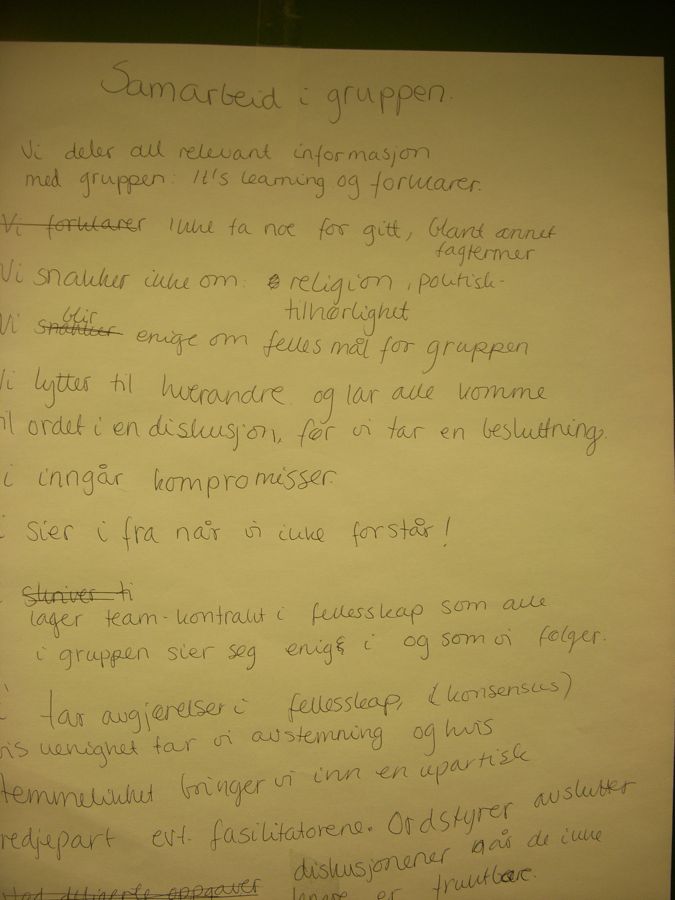 Samarbeid i gruppen.
Vi deler all relevant informasjon
med gruppen: It's learning og forklarer.
Vi forklarer Ikke ta noe for gitt, blant annet
fagtermer
Vi snakker ikke om: religion, politisk-
tilhørlighet
blir
Vi snakker enige om felles mål for gruppen
Vi lytter til hverandre og lar alle komme
til ordet i en diskusjon, før vi tar en besluttning.
i inngår kompromisser.
i sier i fra når vi ikke forstår!
Skriver ti
lager team-kontrakt i fellesskap som alle
i gruppen sier seg enige i og som vi følger.
i tar avgjørelser i fellesskap, (konsensus)
vis uenighet tar vi avstemning og hvis
temmelikhet bringer vi inn en upartisk
redjepart evt. fasilitatorene. Ordstyrer avslutter
diskusjonener når de ikke
oppgaver lengre er fruktbare.